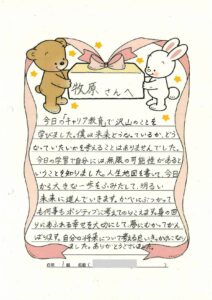 牧原さんへ
今日のキャリア教育で沢山のことを
学びました。僕は未来どうなっているか、どう
なっていたいかを考えることはありませんでした。
今日の学習で自分には無限の可能性がある
ということを知りました。人生地図を書いて、今日
から大きな一歩をふみだして、明るい
未来に進んでいきます。かべにぶつかって
も何事もポジティブに考えてのりこえます。身の回
りにあふれる幸せを大切にして、夢にむかってがん
ばります。自分の将来について考える良いきっかけにな
りました。ありがとうございました。
名前